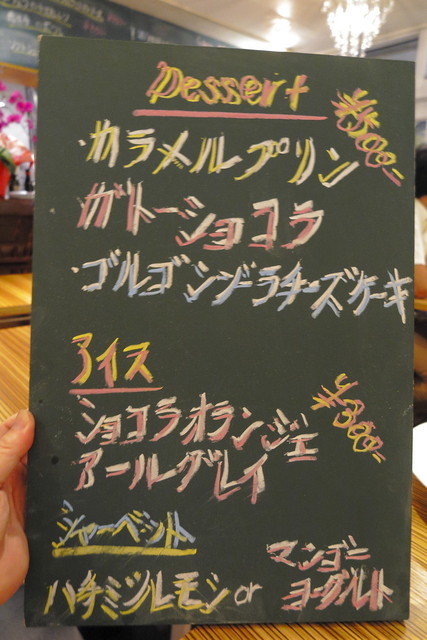 Dessert
¥500-
・カラメルプリン
ガトーショコラ
・ゴルゴンジーラチーズケーキ
アイス
¥300-
ショコラオランジェ
アールグレイ
シャーベット
ハチミツレモン or マンゴーヨーグルト